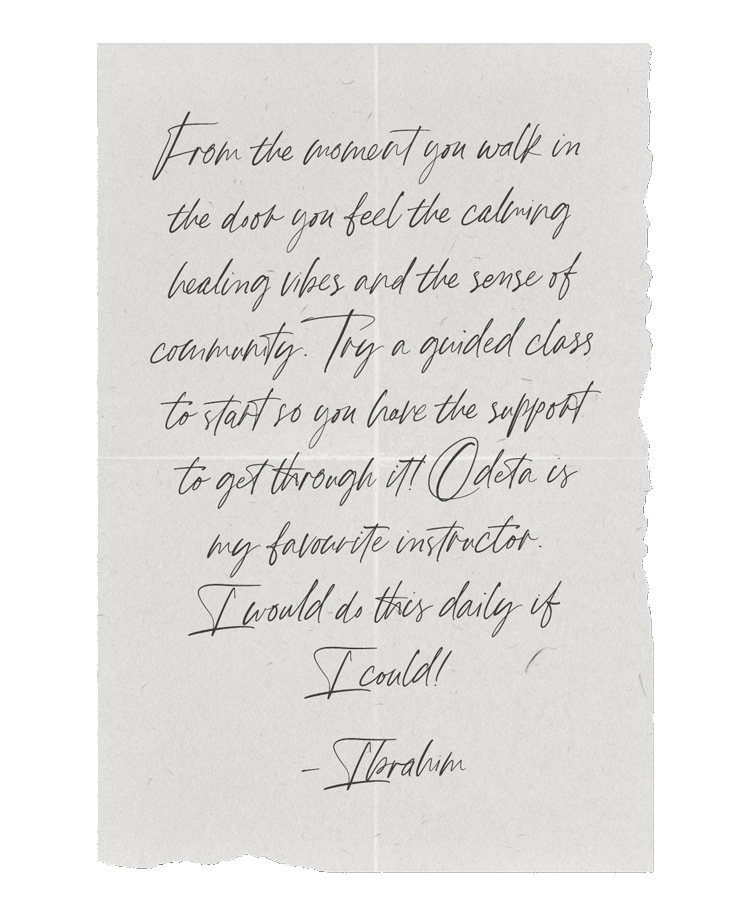 From the moment you walk in
the door you feel the calming
healing vibes and the sense of
community. Try a guided class
to start so you have the support
to get through it! Odeta is
my favourite instructor.
I would do this daily if
I could!
- Ibrahim